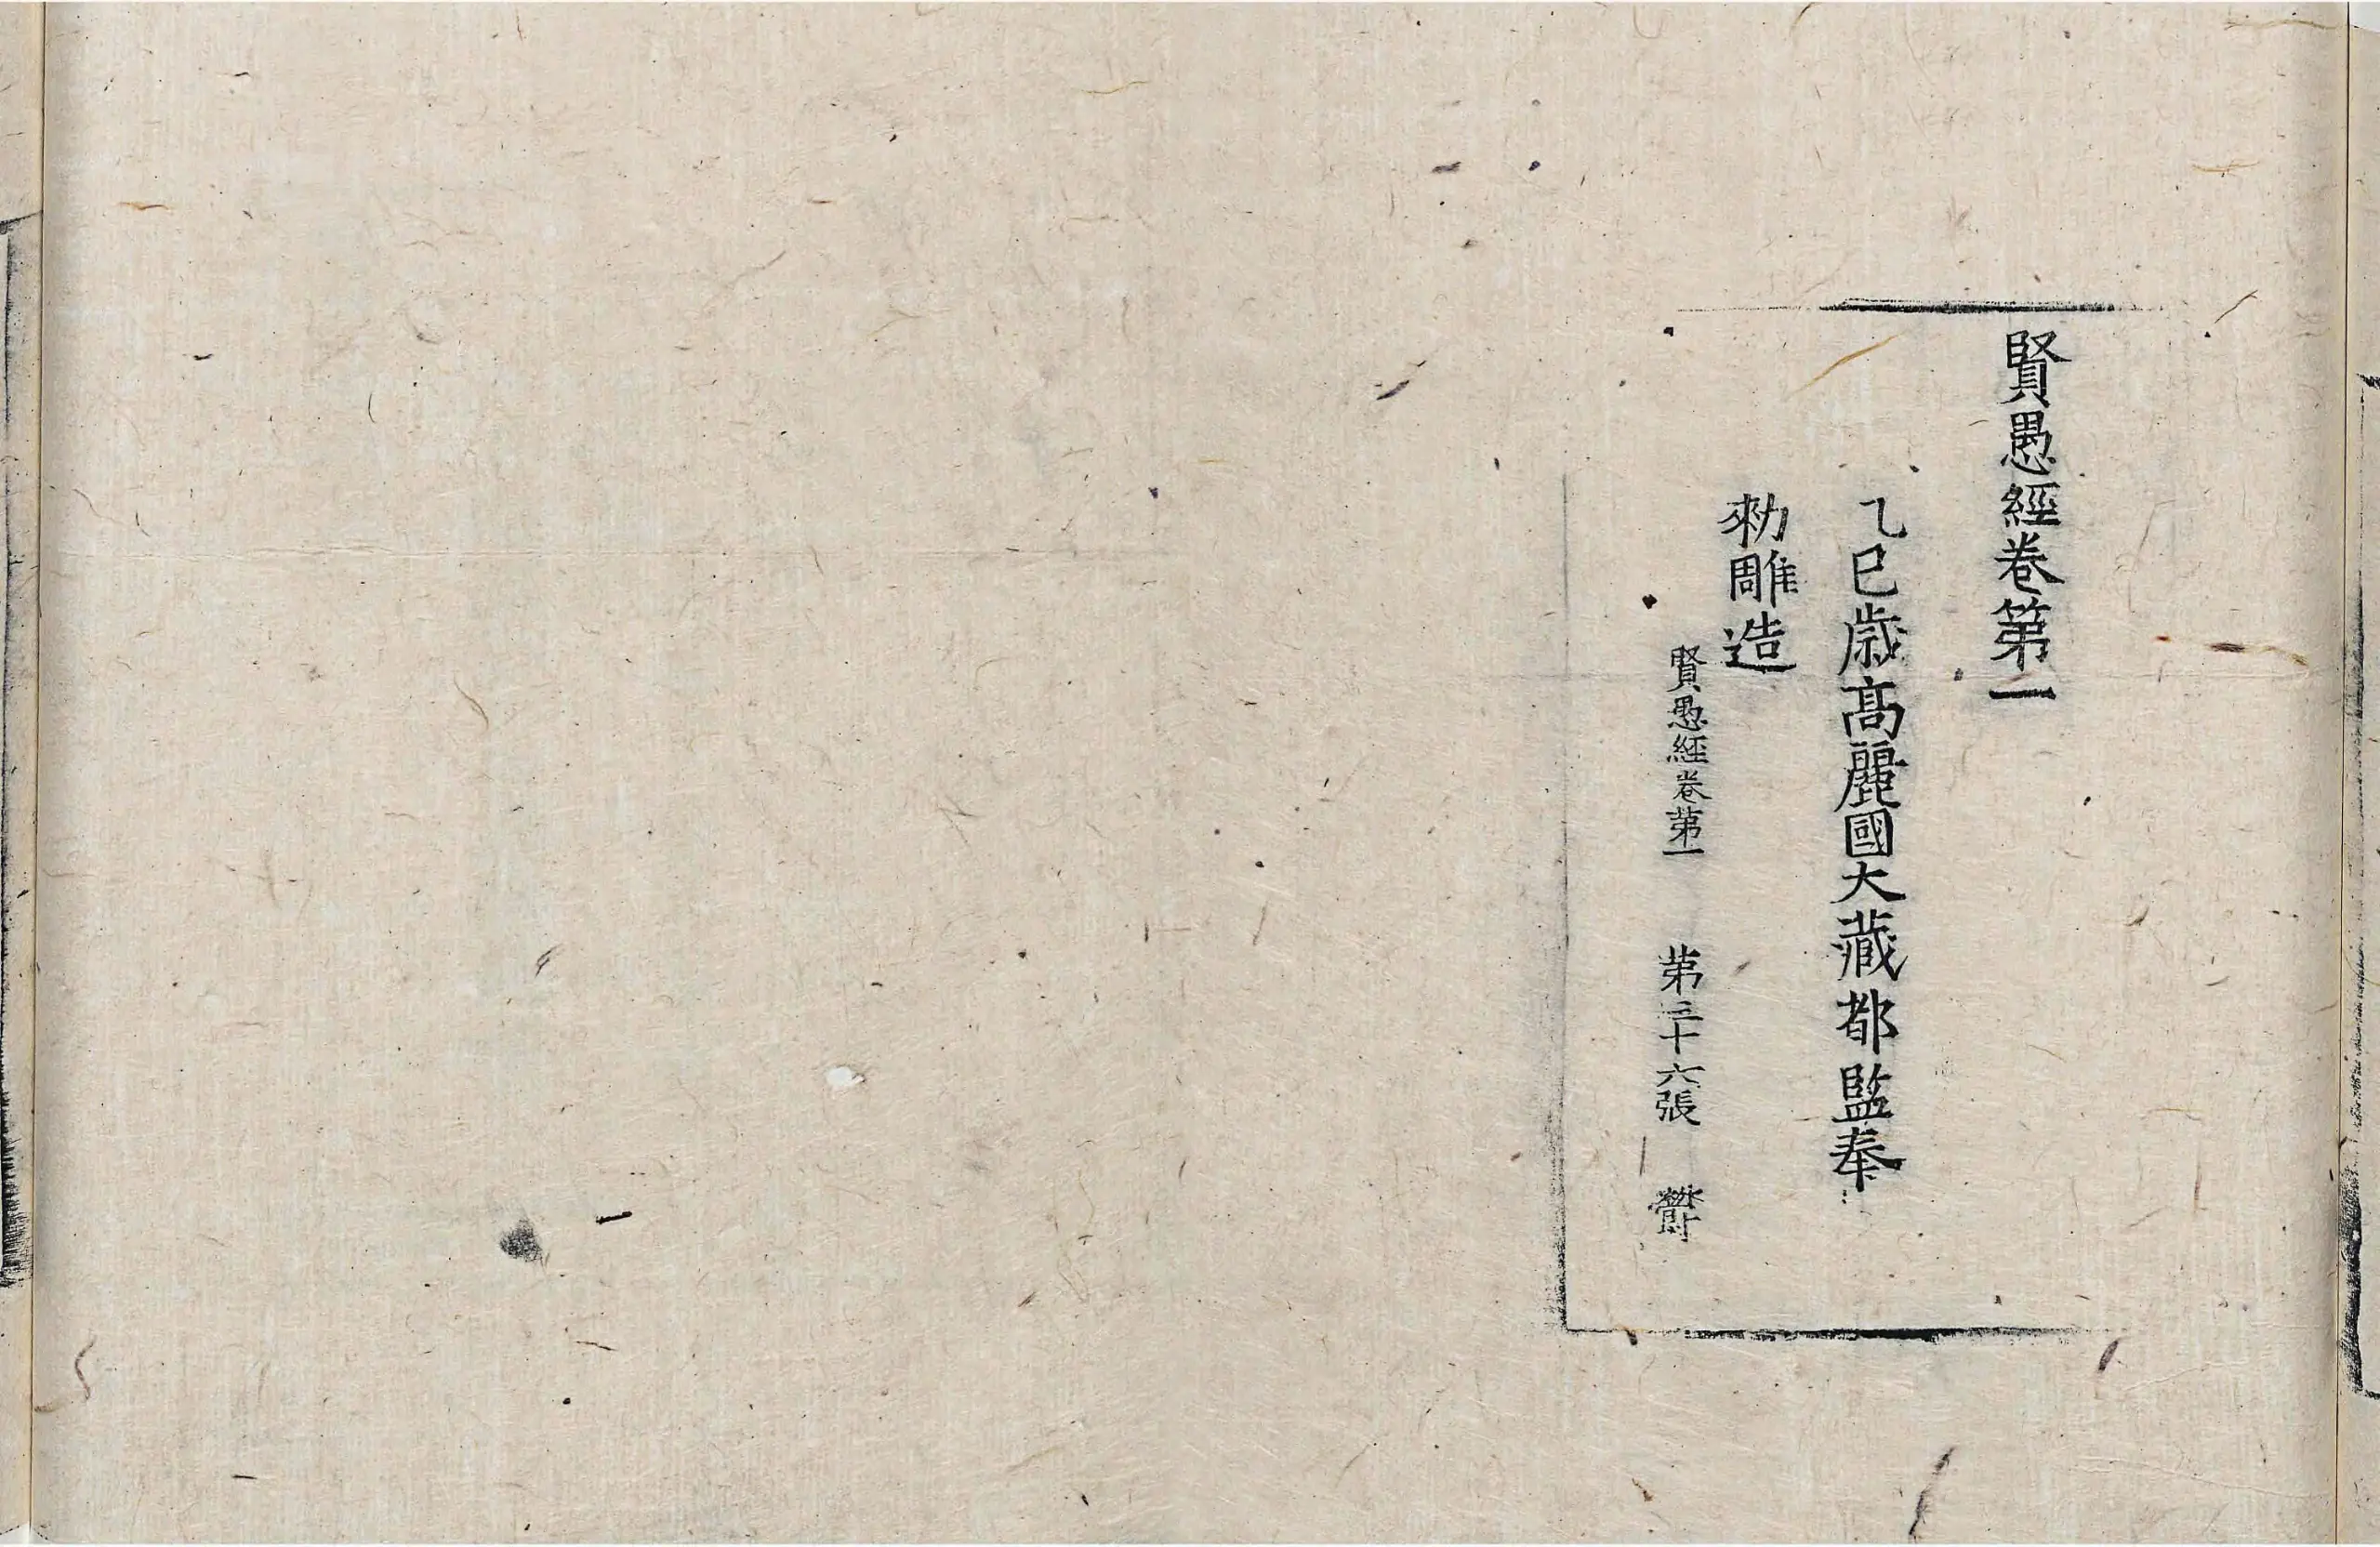 賢愚經卷第一
乙巳歳高麗國大藏都監奉
勑雕造
賢愚經卷第一 第三十六張 欝